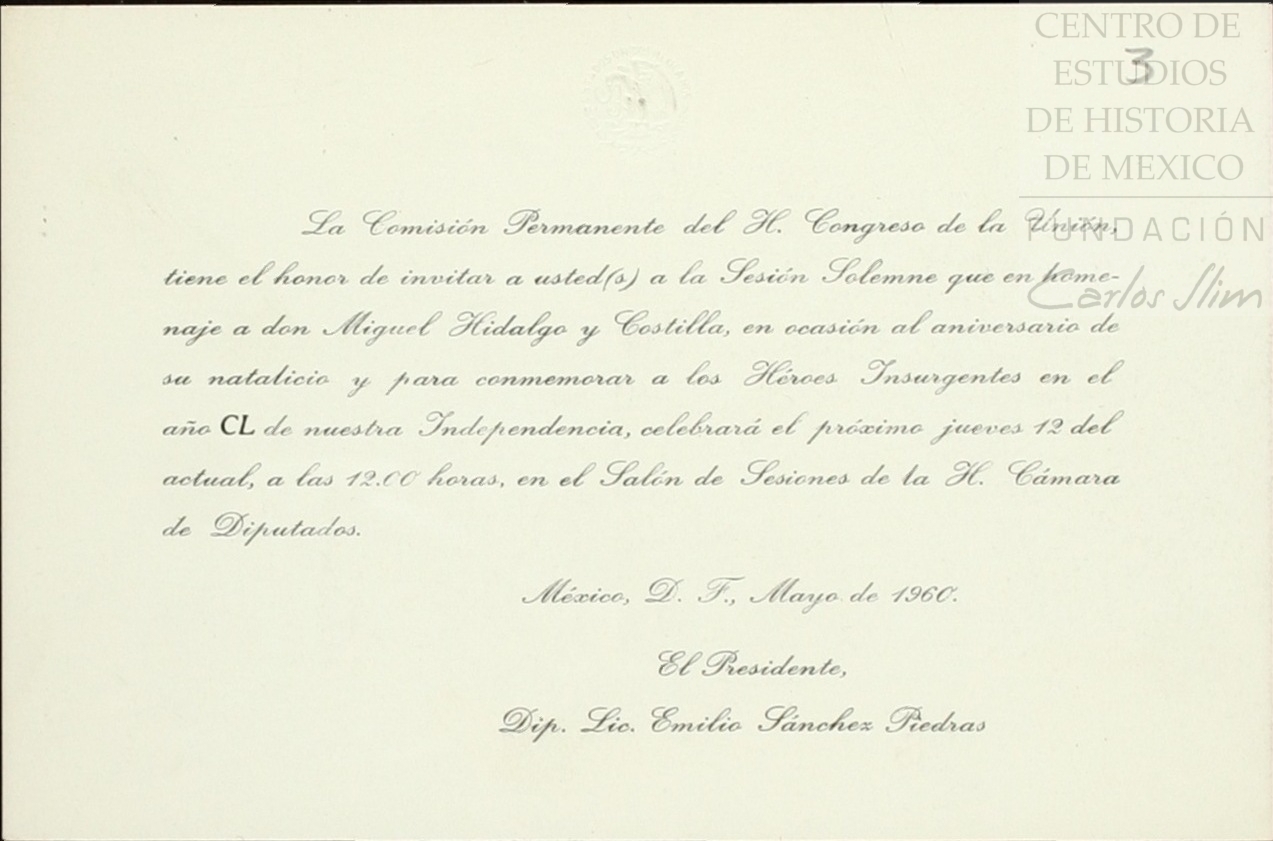 CENTRO DE
ESTUDIOS
DE HISTORIA
DE MEXICO
FUNDACIÓN
Carlos Slim
3
La Comisión Permanente del H. Congreso de la Unión,
tiene el honor de invitar a usted(s) a la Sesión Solemne que en home-
naje a don Miguel Hidalgo y Costilla, en ocasión al aniversario de
su natalicio y para conmemorar a los Héroes Insurgentes en el
año CL de nuestra Independencia, celebrará el próximo jueves 12 del
actual, a las 12.00 horas, en el Salón de Sesiones de la H. Cámara
de Diputados.
México, D. F., Mayo de 1960.
El Presidente,
Dip. Lic. Emilio Sánchez Piedras